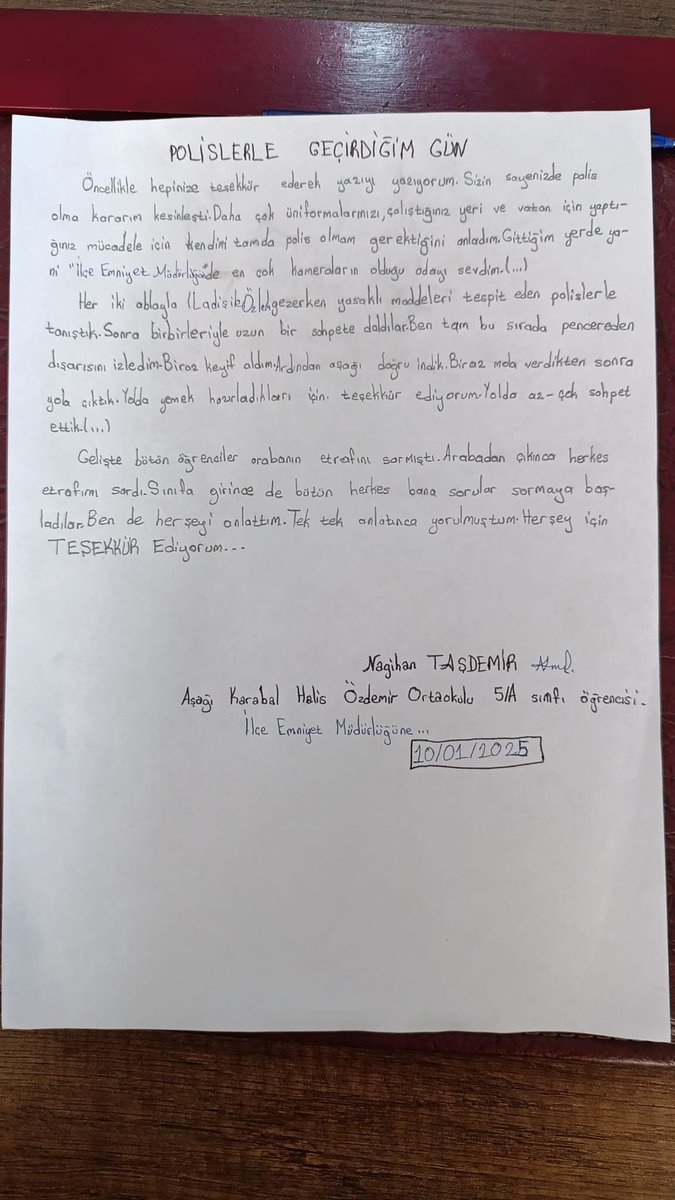 POLİSLERLE GEÇİRDİĞİM GÜN
Öncellikle hepinize teşekkür ederek yazıyı yazıyorum. Sizin sayenizde polis
olma kararım kesinleşti. Daha çok üniformalarınızı, çalıştığınız yeri ve vatan için yaptı-
ğınız mücadele için kendimi tamda polis olmam gerektiğini anladım. Gittiğim yerde ya-
ni "İlçe Emniyet Müdürlüğü"de en çok kameraların olduğu odayı sevdim. (...)
Her iki ablayla (Ladişik, gezerken yasaklı maddeleri tespit eden polislerle
tanıştık. Sonra birbirleriyle uzun bir sohpete daldılar. Ben tam bu sırada pencereden
dışarısını izledim. Biraz keyif aldım. Ardından aşağı doğru indik. Biraz mola verdikten sonra
yola çıktık. Yolda yemek hazırladıkları için. teşekkür ediyorum. Yolda az-çok sohpet
ettik. (...)
Gelişte bütün öğrenciler arabanın etrafını sarmıştı. Arabadan çıkınca herkes
etrafımı sardı. Sınıfa girince de bütün herkes bana sorular sormaya baş-
ladılar. Ben de herşeyi anlattım. Tek tek anlatınca yorulmuştum. Herşey için
TEŞEKKÜR Ediyorum...
Nagihan TAŞDEMİR
Aşağı Karabal Halis Özdemir Ortaokulu 5/A sınıfı öğrencisi.
İlçe Emniyet Müdürlüğüne...
10/01/2025